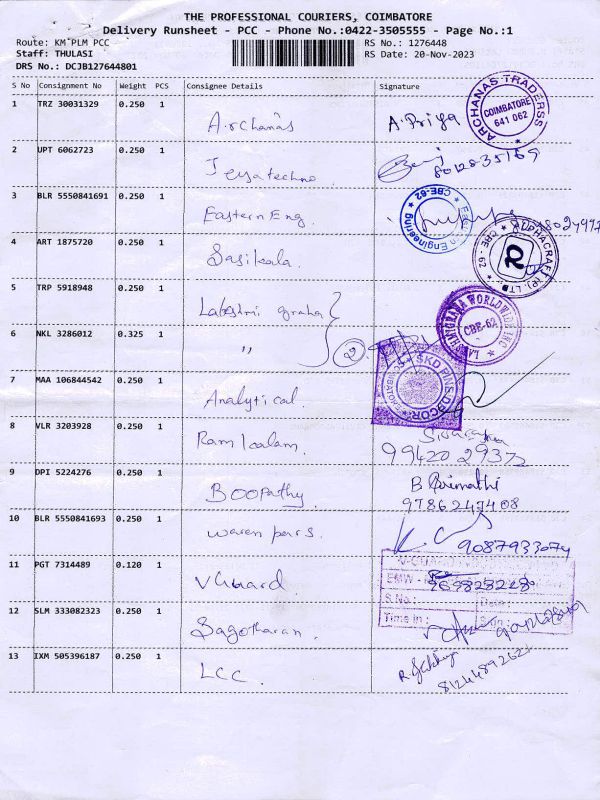 THE PROFESSIONAL COURIERS, COIMBATORE
Delivery Runsheet - PCC - Phone No.:0422-3505555 - Page No.:1
Route: KM PLM PCC RS No.: 1276448
Staff: THULASI RS Date: 20-Nov-2023
DRS No.: DCJB127644801
S No Consignment No Weight PCS Consignee Details Signature
1 TRZ 30031329 0.250 1 Archanas A. Priya
ARCHANAS TRADERSS COIMBATORE 641 062
2 UPT 6062723 0.250 1 Jeyatechno
3 BLR 5550841691 0.250 1 Eastern Eng.
CBE-62
4 ART 1875720 0.250 1 Sasikala.
CBE - 62
5 TRP 5918948 0.250 1 Lakshmi graha
WORLDWIDE INC CBE-62
6 NKL 3286012 0.325 1 "
7 MAA 106844542 0.250 1 Analytical.
SKD FINS DECOR
8 VLR 3203928 0.250 1 Ramkalam.
9 DPI 5224276 0.250 1 Boopathy.
10 BLR 5550841693 0.250 1
9087933074
11 PGT 7314489 0.120 1 VGuard
EMW
S.No
Time in :
12 SLM 333082323 0.250 1 Sagotharan.
13 IXM 505396187 0.250 1 LCC.